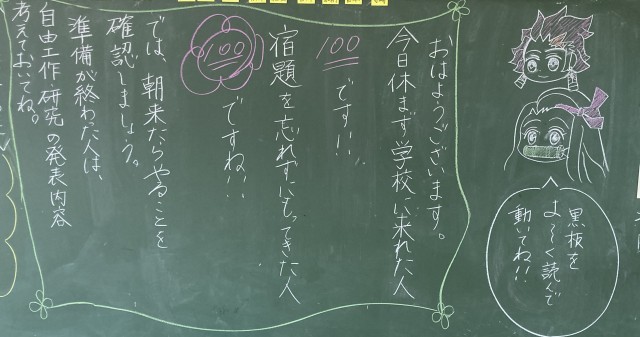 おはようございます。
今日休まず学校に来れた人
100です!!
宿題を忘れずにもってきた人
100ですね!!
では、朝来たらやることを
確認しましょう。
準備が終わった人は、
自由工作・研究の発表内容
考えておいてね。
黒板を
よ〜く読んで
動いてね!!